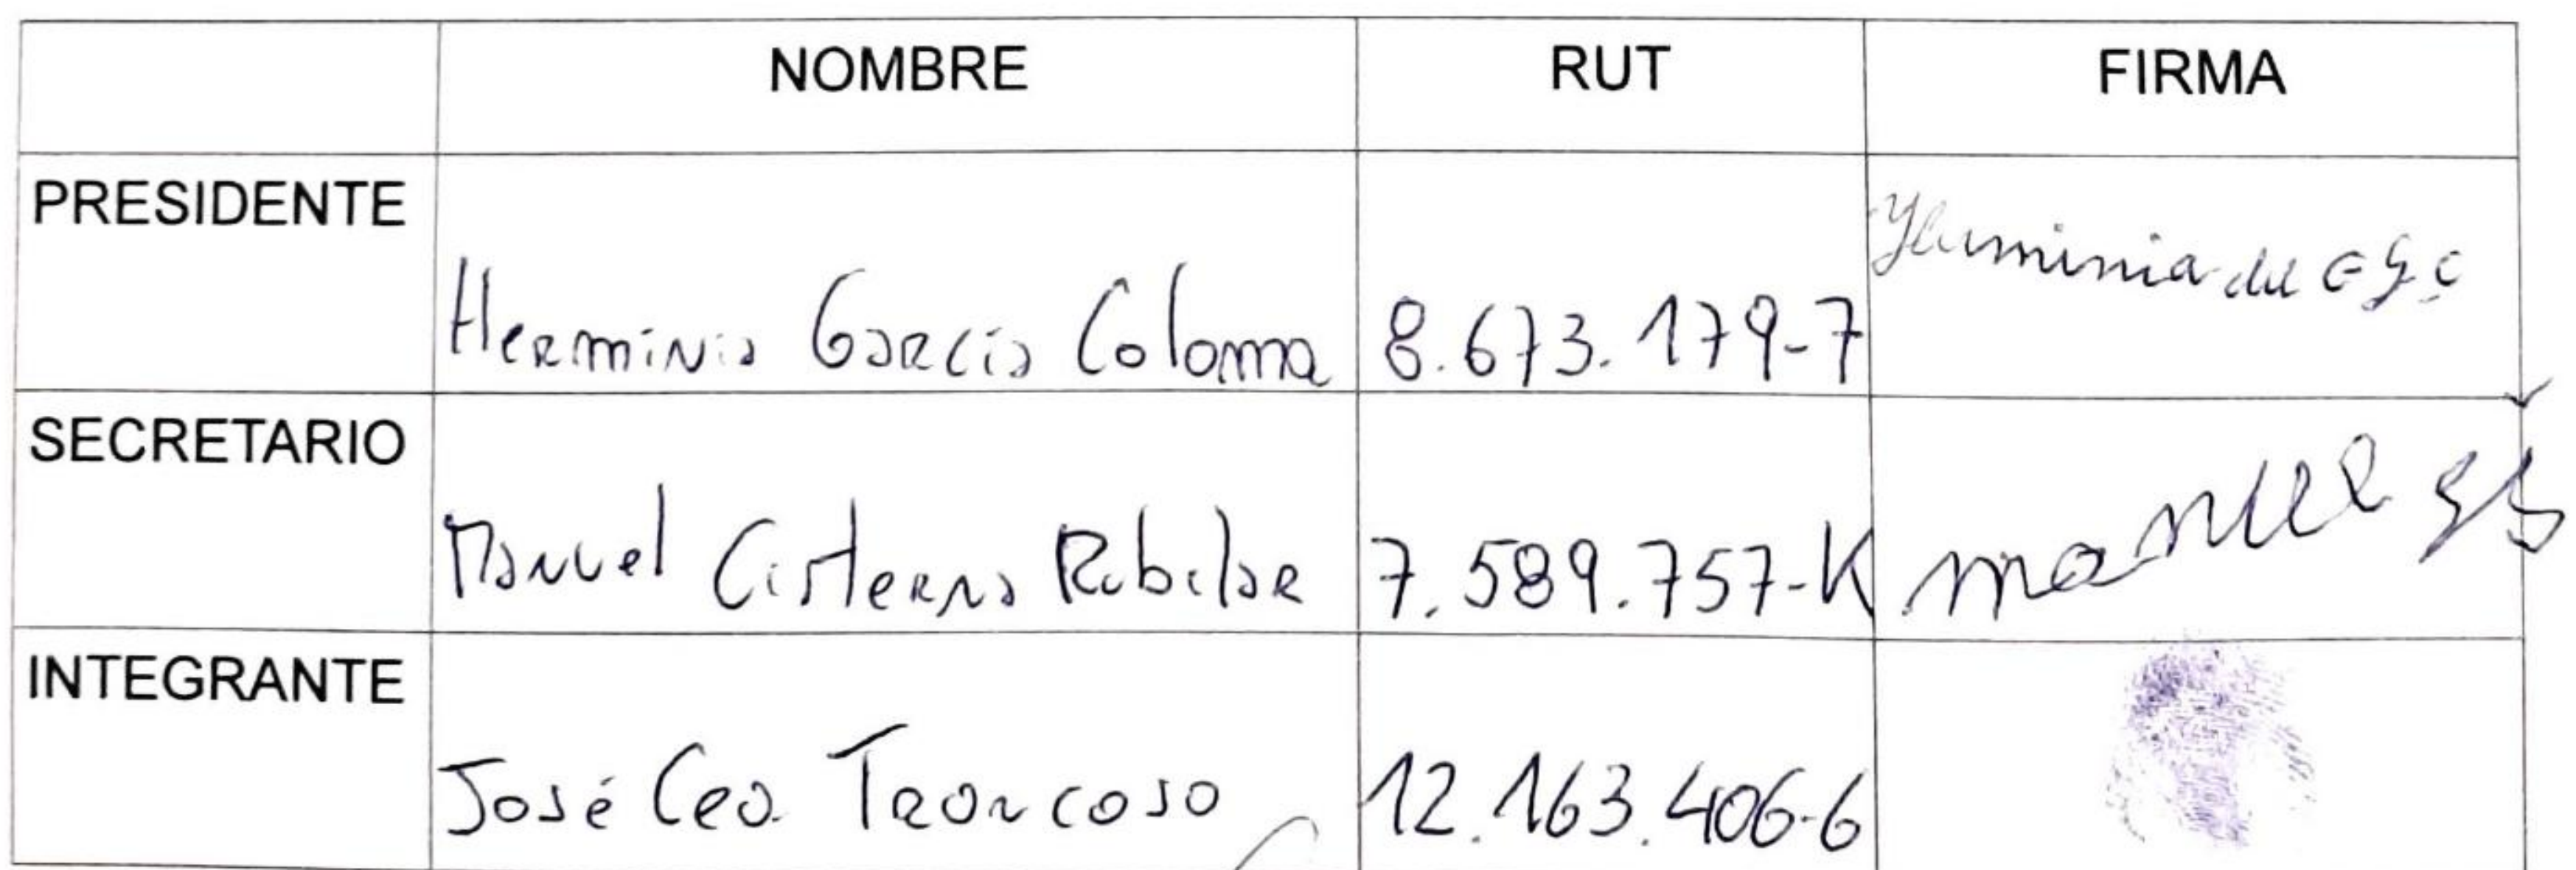 NOMBRE RUT FIRMA
PRESIDENTE
Herminia García Coloma 8.673.179-7
SECRETARIO
Manuel Cisterna Rubilar 7.589.757-K manuel
INTEGRANTE
José Cea Troncoso 12.163.406-6